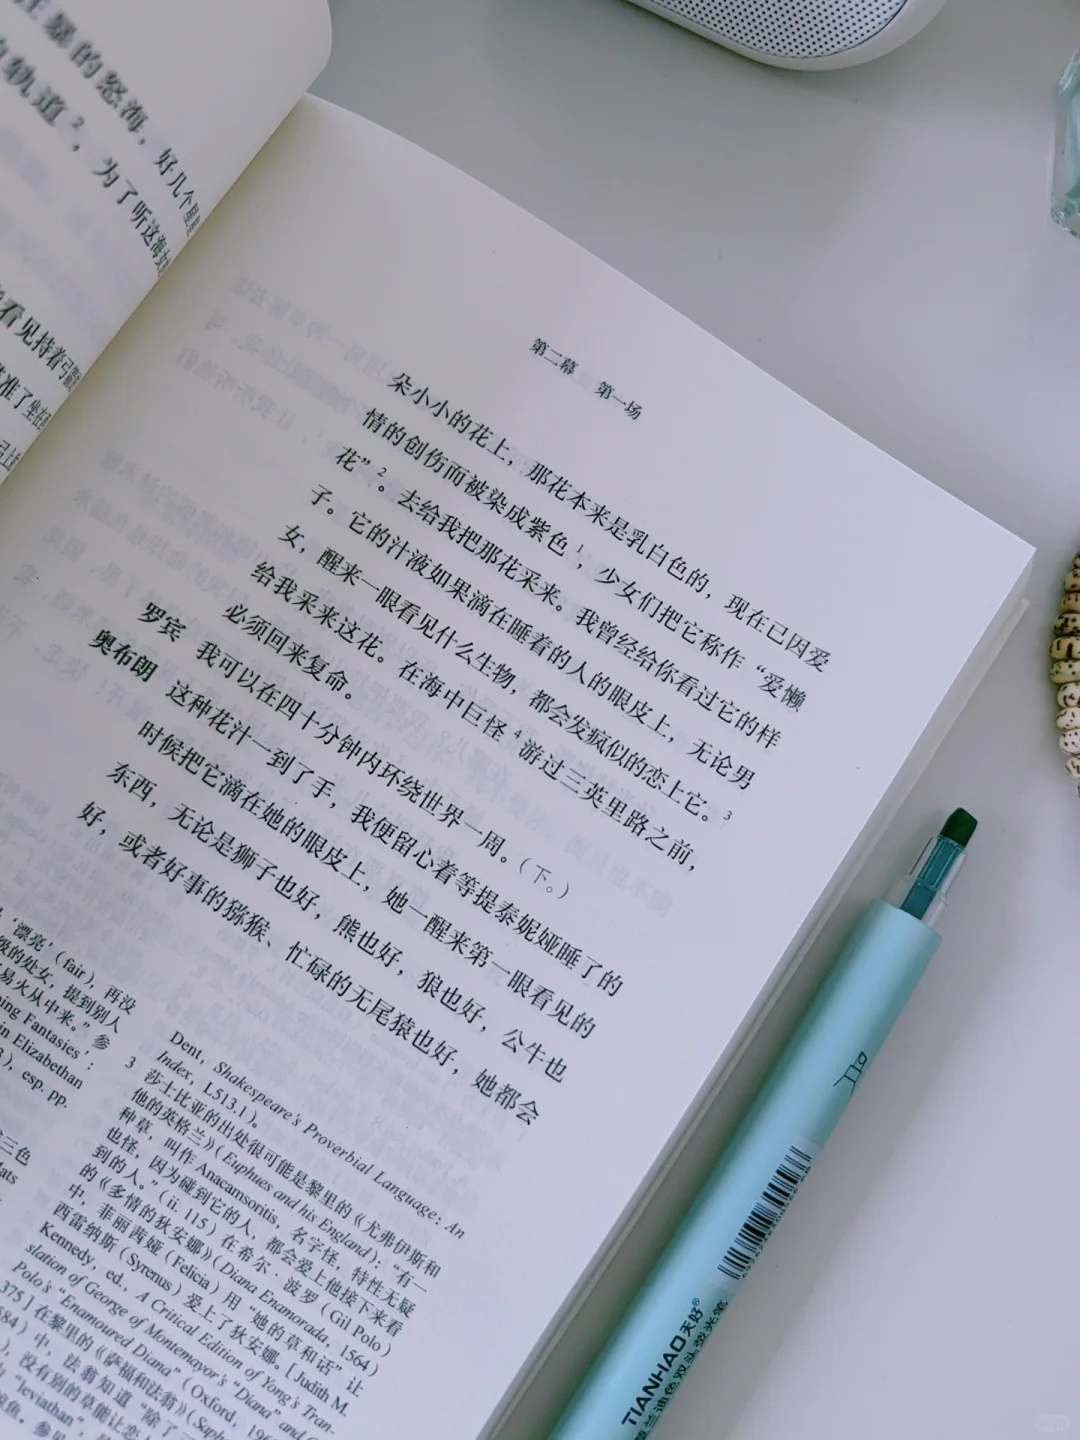 狂暴的怒海，好几个
轨道²，为了听这海女
看见持着弓
准了坐在
第二幕 第一场
朵小小的花上，那花本来是乳白色的，现在已因爱
情的创伤而被染成紫色¹，少女们把它称作“爱懒
花”²。去给我把那花采来。我曾经给你看过它的样
子。它的汁液如果滴在睡着的人的眼皮上，无论男
女，醒来一眼看见什么生物，都会发疯似的恋上它。³
给我采来这花。在海中巨怪⁴游过三英里路之前，
必须回来复命。
罗宾 我可以在四十分钟内环绕世界一周。（下。）
奥布朗 这种花汁一到了手，我便留心着等提泰妮娅睡了的
时候把它滴在她的眼皮上，她一醒来第一眼看见的
东西，无论是狮子也好，熊也好，狼也好，公牛也
好，或者好事的猕猴、忙碌的无尾猿也好，她都会
‘漂亮’（fair），再没
级的处女，提到别人
易火从中来。”参
ping Fantasies’:
in Elizabethan
), esp. pp.
三色
Mats
Dent, Shakespeare's Proverbial Language: An
Index, L513.1）。
3 莎士比亚的出处很可能是黎里的《尤弗伊斯和
他的英格兰》（Euphues and his England）：“有一
种草，叫作 Anacamsoritis，名字怪，特性无疑
也怪，因为碰到它的人，都会爱上他接下来看
到的人。”（ii. 115）在希尔·波罗（Gil Polo）
的《多情的狄安娜》（Diana Enamorada, 1564）
中，菲丽茜娅（Felicia）用“她的草和话”让
西雷纳斯（Syrenus）爱上了狄安娜。[ Judith M.
Kennedy, ed., A Critical Edition of Yong's Tran-
slation of George of Montemayor's “Diana” and G
Polo's “Enamoured Diana” (Oxford, 196
375 ] 在黎里的《萨福和法翁》（Saph
584）中，法翁知道“除了
），没有别的草能让恋
“leviathan”，
鲸鱼。参见
TIANHAO天好®
双头荧光笔